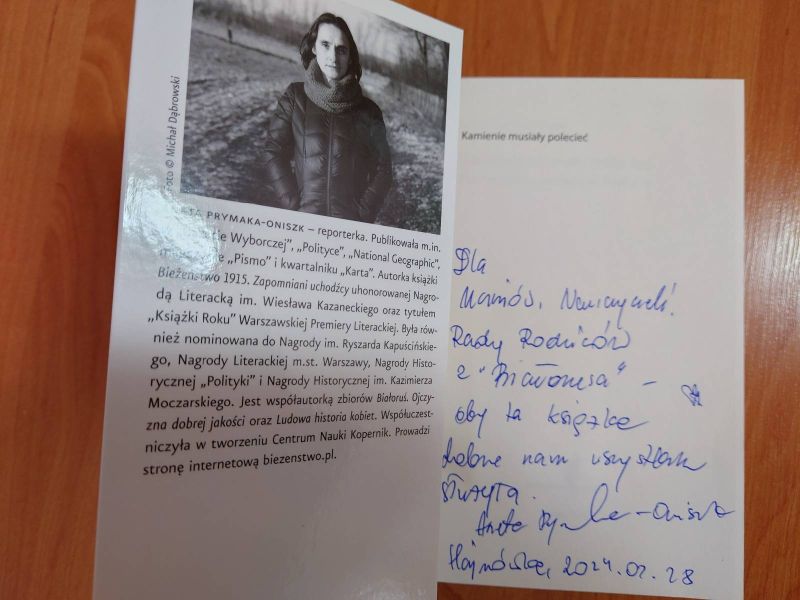 Foto © Michał Dąbrowski
PRYMAKA-ONISZK – reporterka. Publikowała m.in.
Wyborczej”, „Polityce”, „National Geographic”,
„Pismo” i kwartalniku „Karta”. Autorka książki
Bieżeństwo 1915. Zapomniani uchodźcy uhonorowanej Nagro-
dą Literacką im. Wiesława Kazaneckiego oraz tytułem
„Książki Roku” Warszawskiej Premiery Literackiej. Była rów-
nież nominowana do Nagrody im. Ryszarda Kapuścińskie-
go, Nagrody Literackiej m.st. Warszawy, Nagrody Histo-
rycznej „Polityki” i Nagrody Historycznej im. Kazimierza
Moczarskiego. Jest współautorką zbiorów Białoruś. Ojczy-
zna dobrej jakości oraz Ludowa historia kobiet. Współuczest-
niczyła w tworzeniu Centrum Nauki Kopernik. Prowadzi
stronę internetową biezenstwo.pl.
Kamienie musiały polecieć
Dla
Uczniów, Nauczycieli,
Rady Rodziców
z "Białorusa" –
oby ta książka
dobrze nam wszystkim
służyła.
Aneta Prymaka-Oniszk
Hajnówka, 2024.02.28